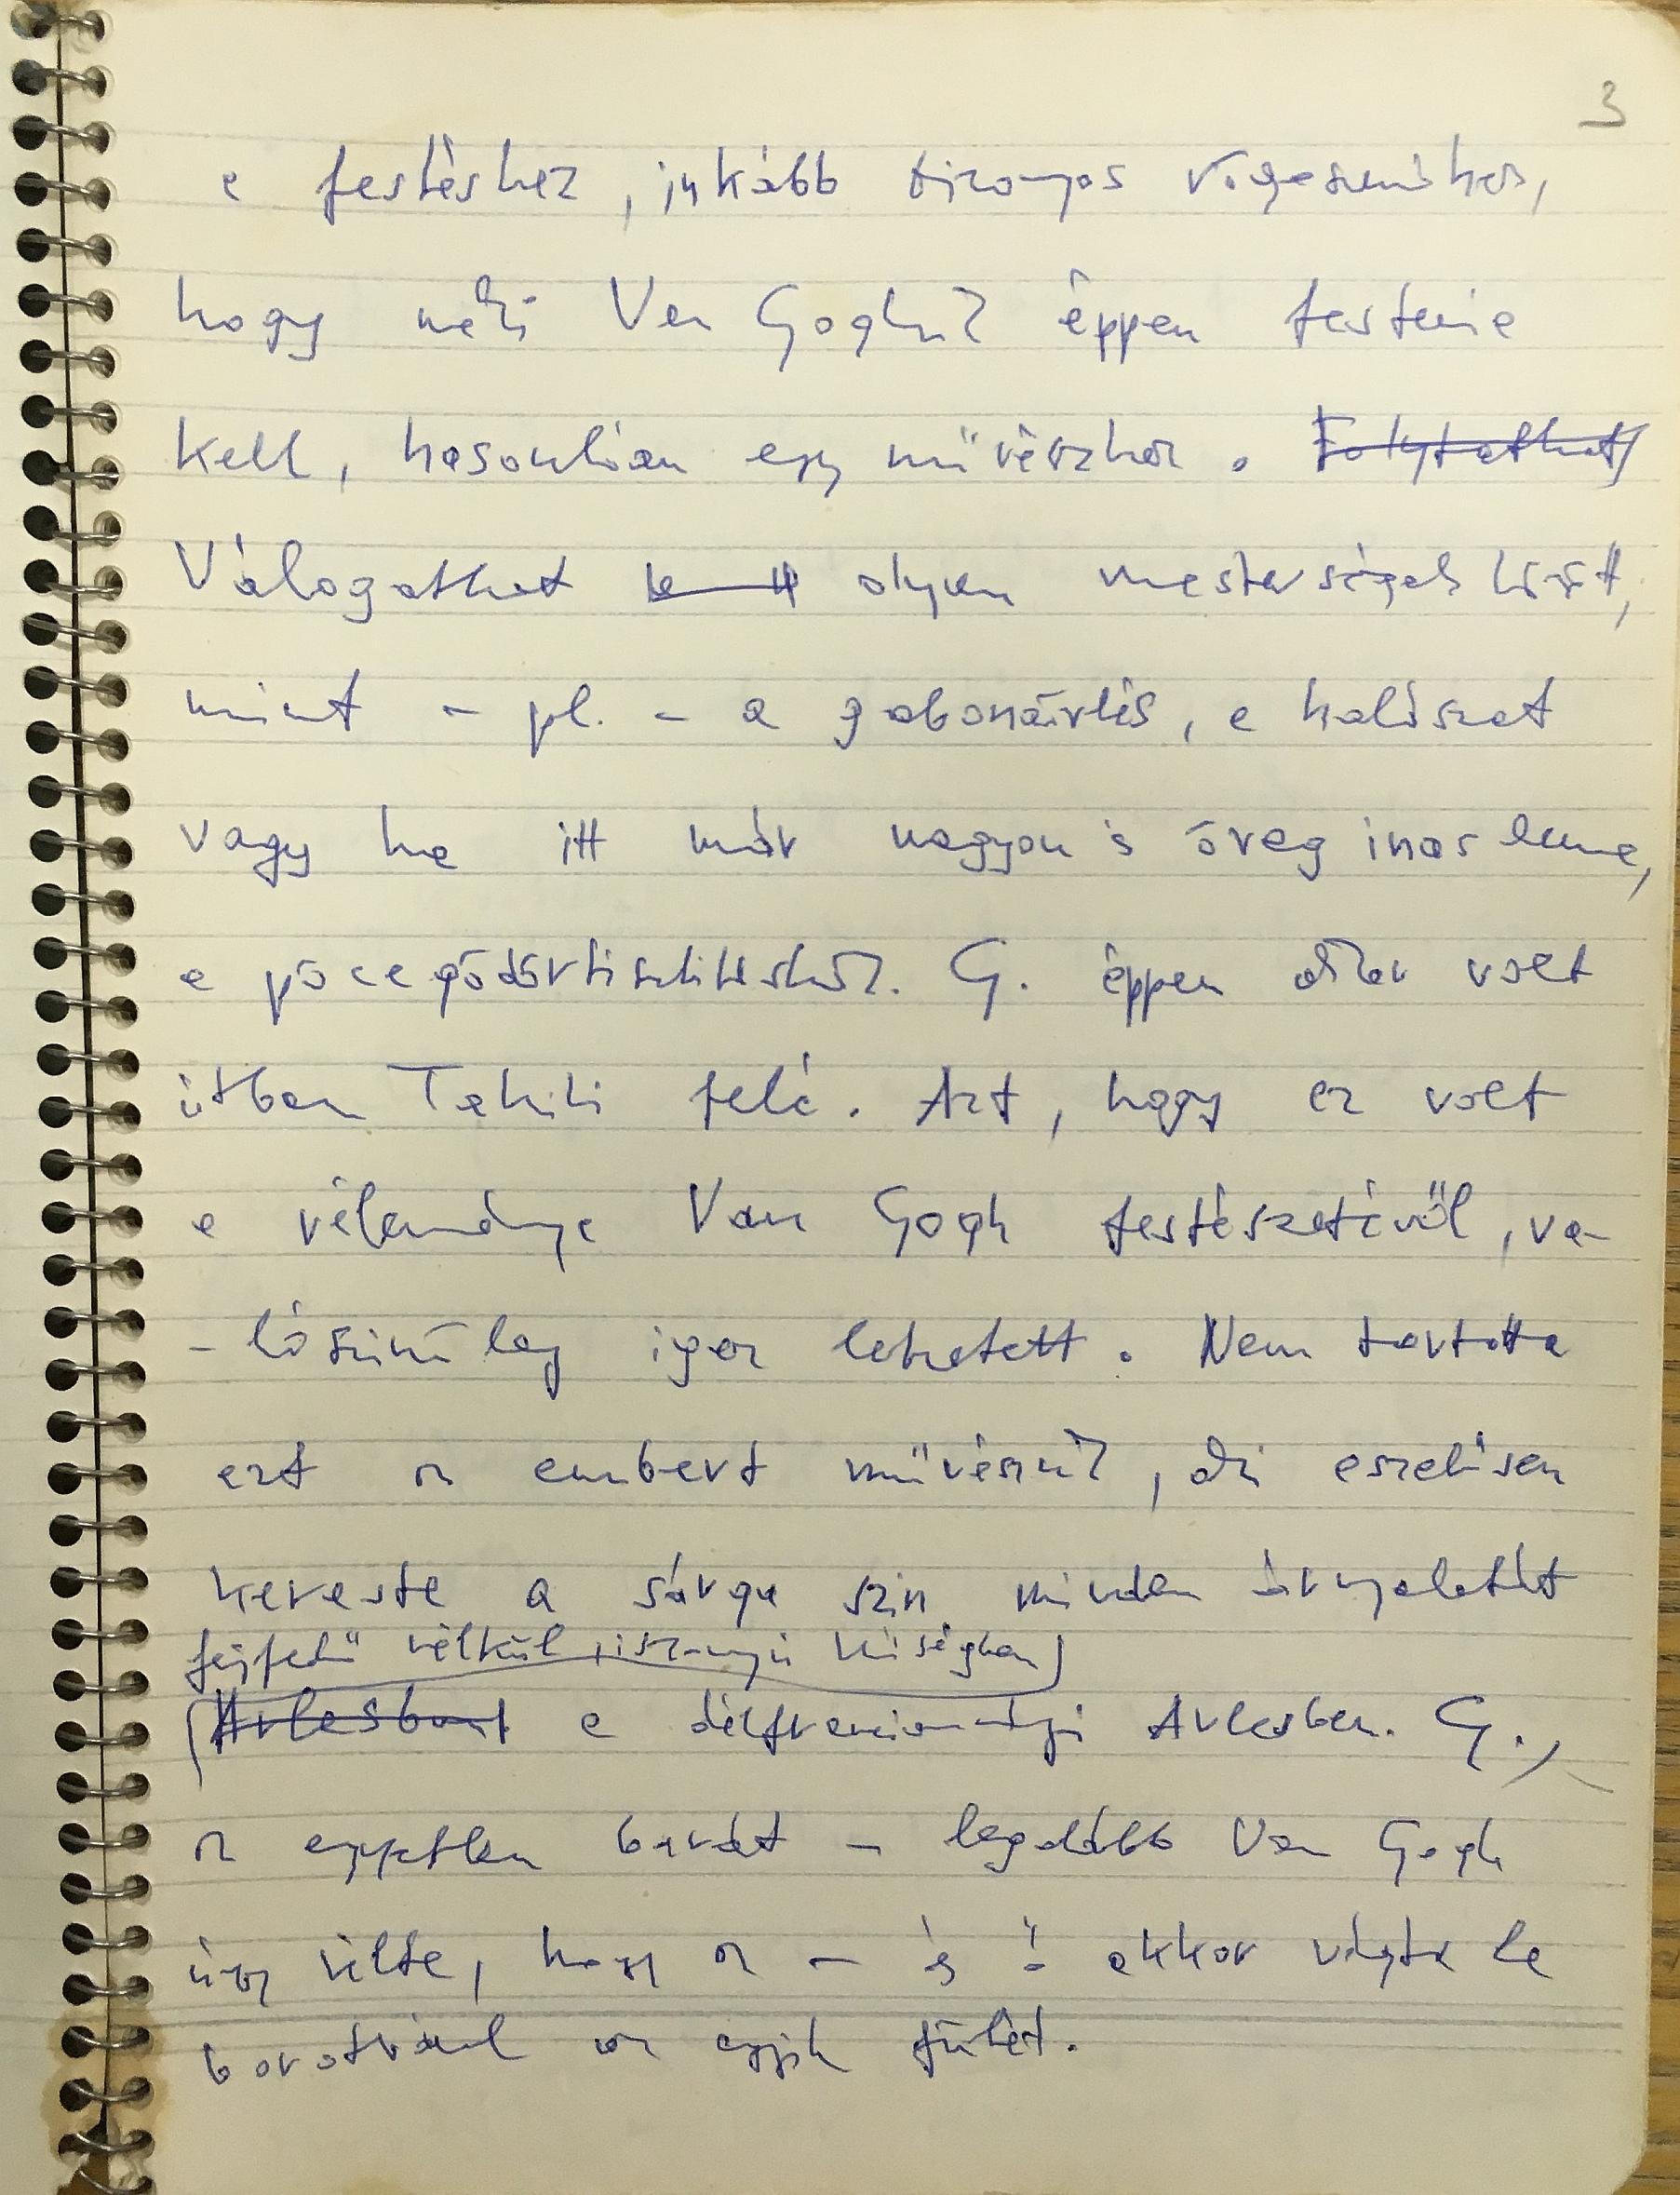 3
a festéshez, inkább bizonyos rögeszméhez,
hogy neki Van Goghnak éppen festenie
kell, hasonlóan egy művészhez. Folytathat
Válogathat olyan mesterségek közt,
mint – pl. – a gabonaárulás, a halászat
vagy ha itt már nagyon is öreg inas lenne,
a pöcegödörtisztításhoz. G. éppen akkor volt
útban Tahiti felé. Azt, hogy ez volt
a véleménye Van Gogh festészetéről, va-
-lószinüleg igaz lehetett. Nem tartotta
ezt az embert művésznek, aki eszelősen
kereste a sárga szin minden árnyalatát
fejfedő nélkül, iszonyú hőségben
Arlesban a délfranciaországi Arlesben. G.,
az egyetlen barát – legalább Van Gogh
úgy vélte, hogy az – és ő akkor vágta le
borotvával az egyik fülét.